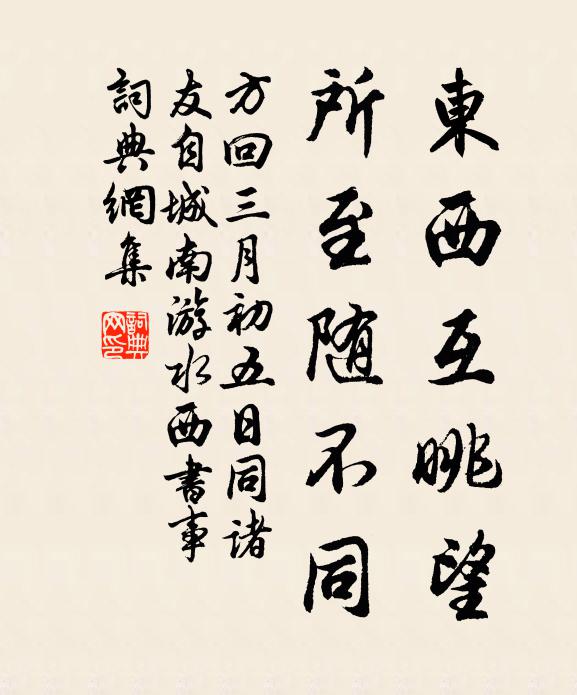 東西互眺望
所至随不同
方回三月初五日同諸
友自城南游水西書事
詞典網集
詞典
网印